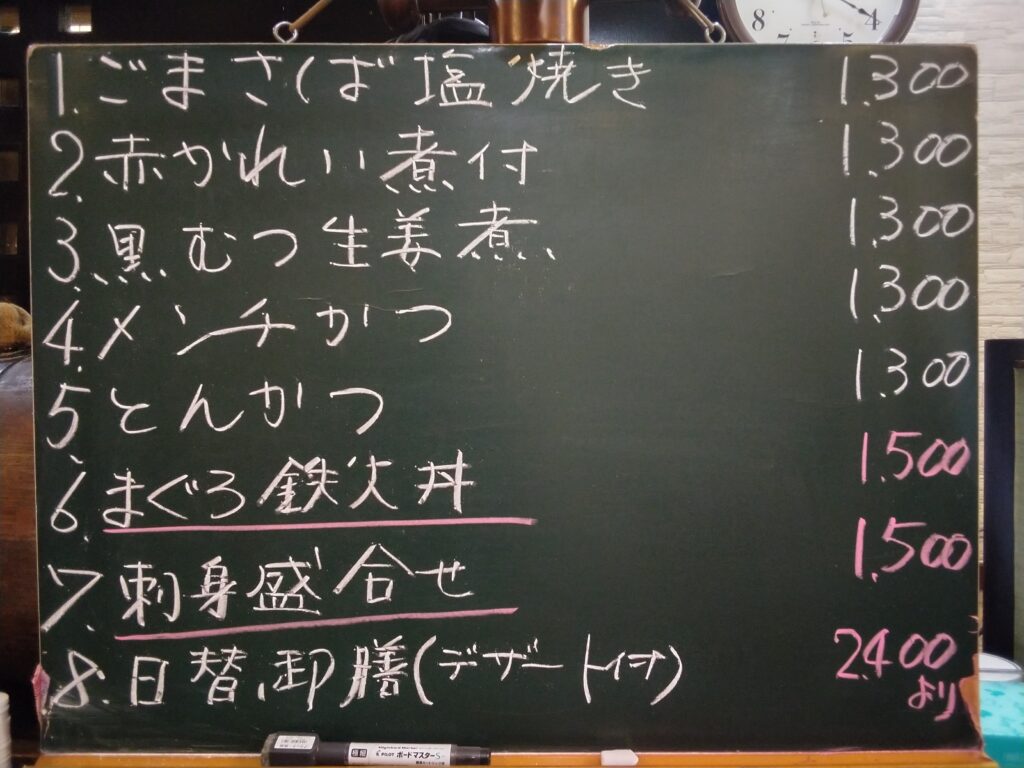 1. ごまさば塩焼き 1.300
2. 赤かれい煮付 1.300
3. 黒むつ生姜煮 1.300
4. メンチかつ 1.300
5. とんかつ 1.300
6. まぐろ鉄火丼 1.500
7. 刺身盛合せ 1.500
8. 日替御膳(デザート付) 2.400
より
PILOT ボードマスターS
8 7 5 4